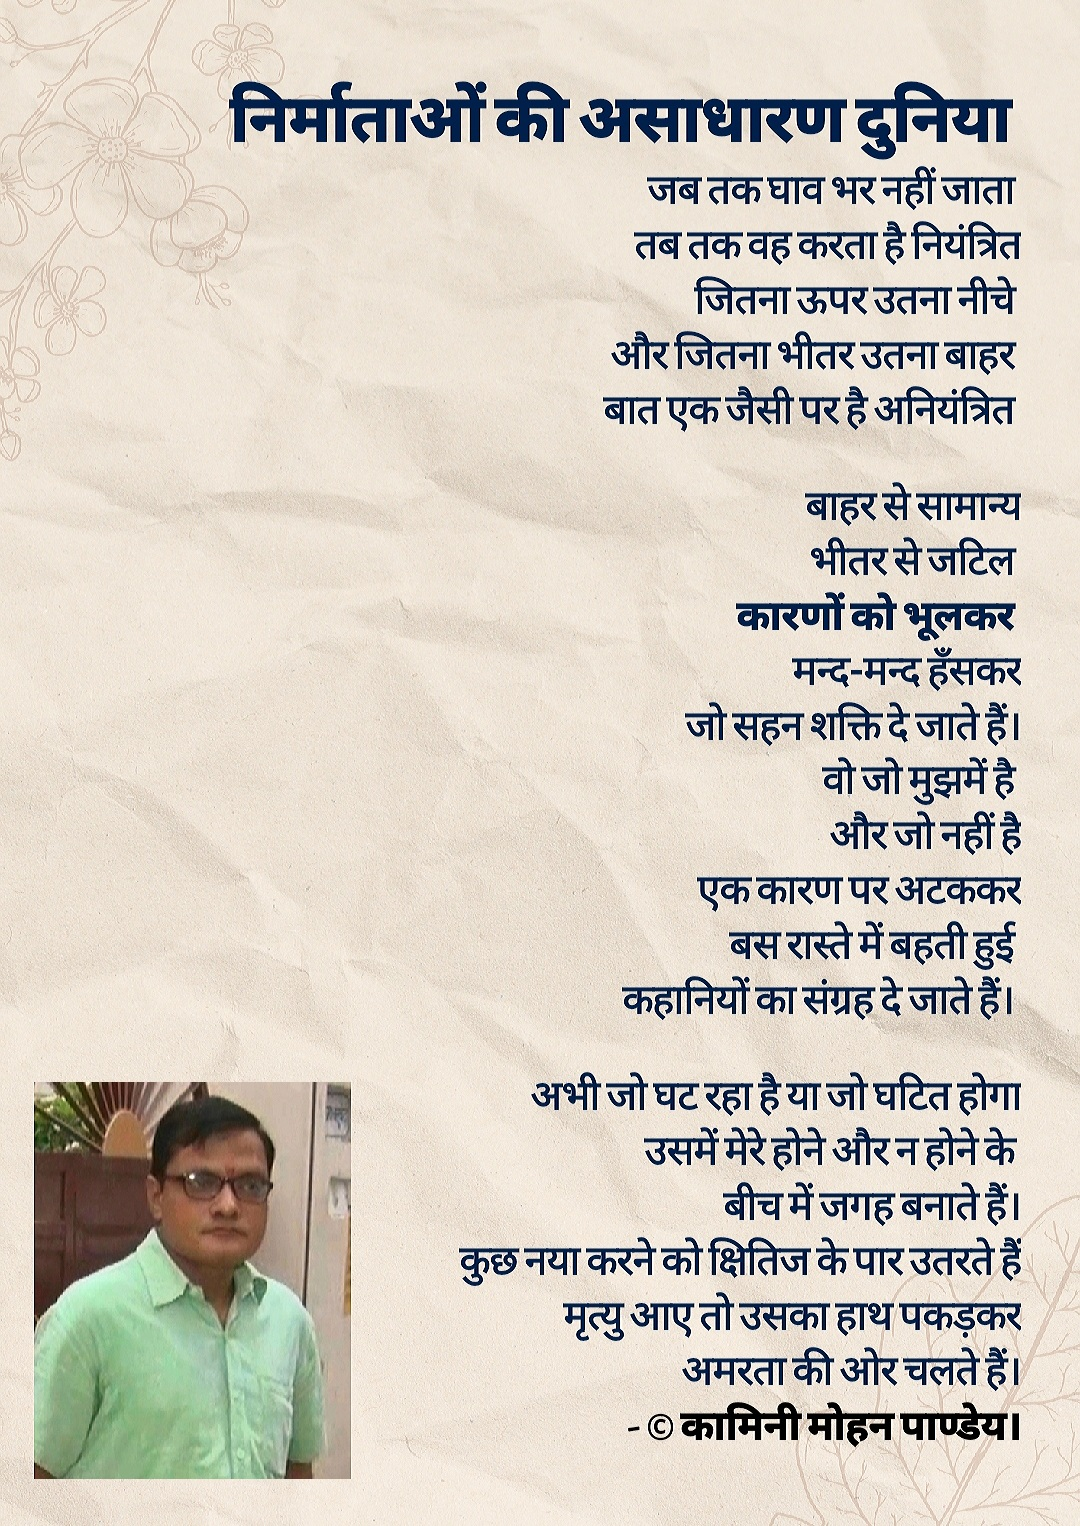 निर्माताओं की असाधारण दुनिया
जब तक घाव भर नहीं जाता
तब तक वह करता है नियंत्रित
जितना ऊपर उतना नीचे
और जितना भीतर उतना बाहर
बात एक जैसी पर है अनियंत्रित
बाहर से सामान्य
भीतर से जटिल
कारणों को भूलकर
मन्द-मन्द हँसकर
जो सहन शक्ति दे जाते हैं।
वो जो मुझमें है
और जो नहीं है
एक कारण पर अटककर
बस रास्ते में बहती हुई
कहानियों का संग्रह दे जाते हैं।
अभी जो घट रहा है या जो घटित होगा
उसमें मेरे होने और न होने के
बीच में जगह बनाते हैं।
कुछ नया करने को क्षितिज के पार उतरते हैं
मृत्यु आए तो उसका हाथ पकड़कर
अमरता की ओर चलते हैं।
- © कामिनी मोहन पाण्डेय।